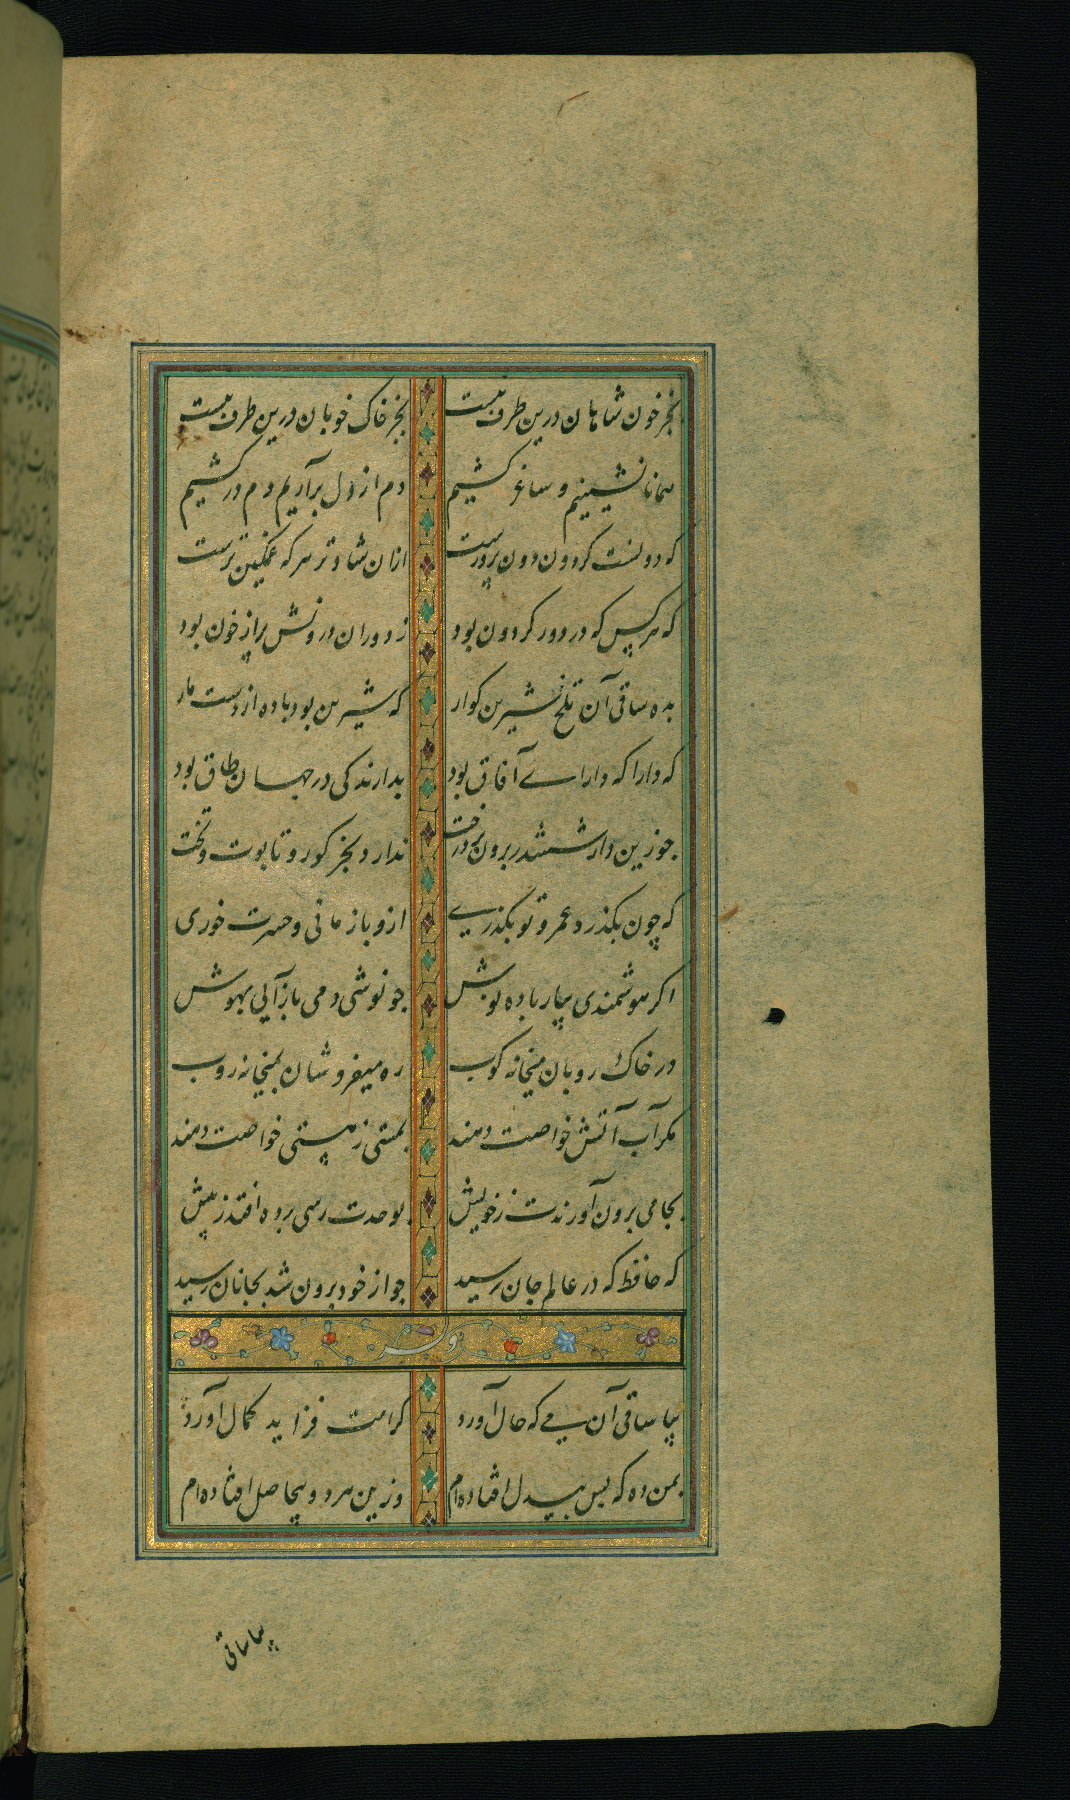 بجز خون شاهان درین طرف نیست بجز خاک خوبان درین طرف نیست
همانا نشینیم و ساغر کشیم دم از دل برآریم و دم درکشیم
که دولت کردون دون پرورست ازان شادتر هر که غمکین ترست
که هر کس که در دور کردون بود ز دوران درونش پر از خون بود
بده ساقی آن تلخ شیرین کوار که شیرین بود باده از دست مار
که دارا که دارای آفاق بود بدارندکی در جهان طاق بود
جو زین دار ششدر برون برد رخت ندارد بجز کور و تابوت و تخت
که چون بکذرد عمر و تو بکذری ازو باز مانی و حسرت خوری
اکر هوشمندی بیار باده نوش جو نوشی دمی باز آیی بهوش
در خاک روبان میخانه کوب ره میفروشان بمیخانه روب
مکر آب آتش خواصت دهند بمستی ز هستی خواصت دهند
بجامی برون آورندت ز خویش بوحدت رسی برده افتد ز پیش
که حافظ که در عالم جان رسید جو از خود برون شد بجانان رسید
بیا ساقی آن می که حال آورد کرامت فزاید کمال آورد
بمن ده که بس بیدل افتاده‌ام وزین هر دو بیحاصل افتاده‌ام
بیا ساقی